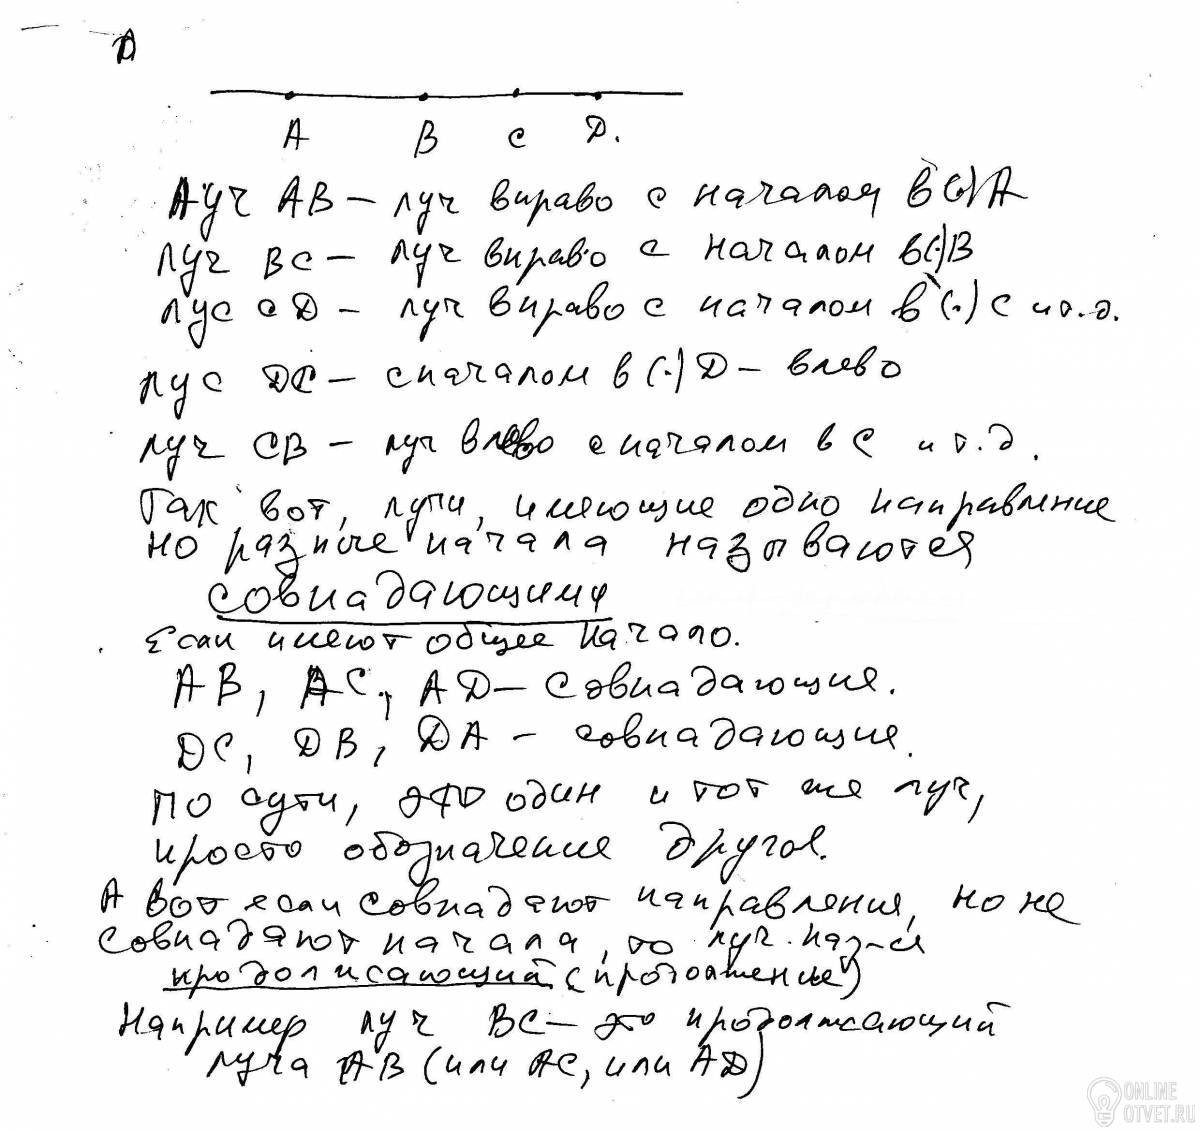 Д
А В С Д.
Луч АВ – луч вправо с началом в (·) А
луч ВС – луч вправо с началом в (·) В
лус СД – луч вправо с началом в (·) С и т.д.
лус ДС – с началом в (·) Д – влево
луч СВ – луч влево с началом в С и т.д.
Так вот, лучи, имеющие одно направление
но разные начала называются
совпадающими
Если имеют общее начало.
АВ, АС, АД – совпадающие.
ДС, ДВ, ДА – совпадающие.
По сути, это один и тот же луч,
просто обозначение другое.
А вот если совпадают направления, но не
совпадают начала, то луч наз-ся
продолжающий (продолжение)
Например луч ВС – это продолжающий
луча АВ (или АС, или АД)
ONLINE
OTVET.RU